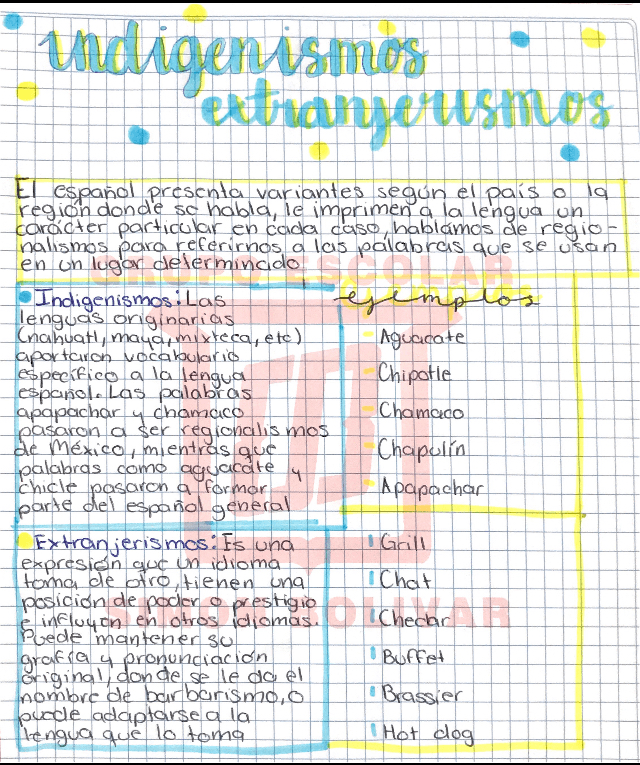 indigenismos
extranjerismos
El español presenta variantes según el país o la
región donde se habla, le imprimen a la lengua un
carácter particular en cada caso, hablamos de regio-
nalismos para referirnos a las palabras que se usan
en un lugar determinado
GRUPO ESCOLAR
Indigenismos: Las
lenguas originarias
(nahuatl, maya, mixteca, etc)
aportaron vocabulario
específico a la lengua
español. Las palabras
apapachar y chamaco
pasaron a ser regionalismos
de México, mientras que
palabras como aguacate y
chicle pasaron a formar
parte del español general
ejemplos
- Aguacate
- Chipotle
- Chamaco
- Chapulín
- Apapachar
Extranjerismos: Es una
expresión que un idioma
toma de otro, tienen una
posición de poder o prestigio
e influyen en otros idiomas.
Puede mantener su
grafía y pronunciación
original, donde se le da el
nombre de barbarismo, o
puede adaptarse a la
lengua que lo toma
Grill
Chat
Checar
Buffet
Brassier
Hot dog